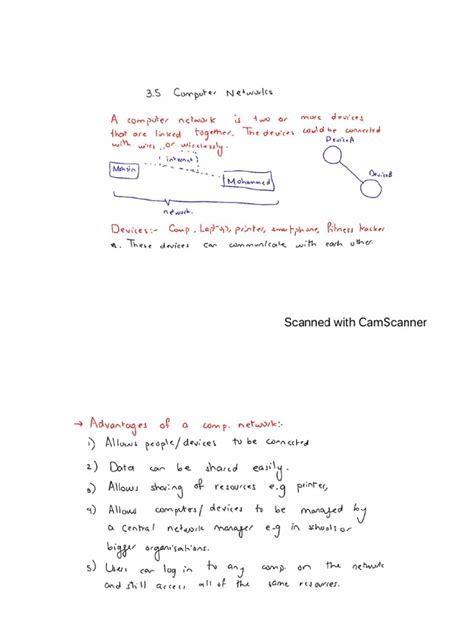 3.5 Computer Networks
A computer network is two or more devices
that are linked together. The devices could be connected
with wires or wirelessly.
Device A
internet
Mohsin
Device B
Mohammed
network.
Devices:- Comp, Laptops, printer, smartphone, fitness tracker
These devices can communicate with each other
Scanned with CamScanner
→ Advantages of a comp. network:-
1) Allows people/devices to be connected
2) Data can be shared easily.
3) Allows sharing of resources e.g printer,
4) Allows computers/devices to be managed by
a central network manager e.g in schools or
bigger organisations.
5) Users can log in to any comp on the network
and still access all of the same resources.